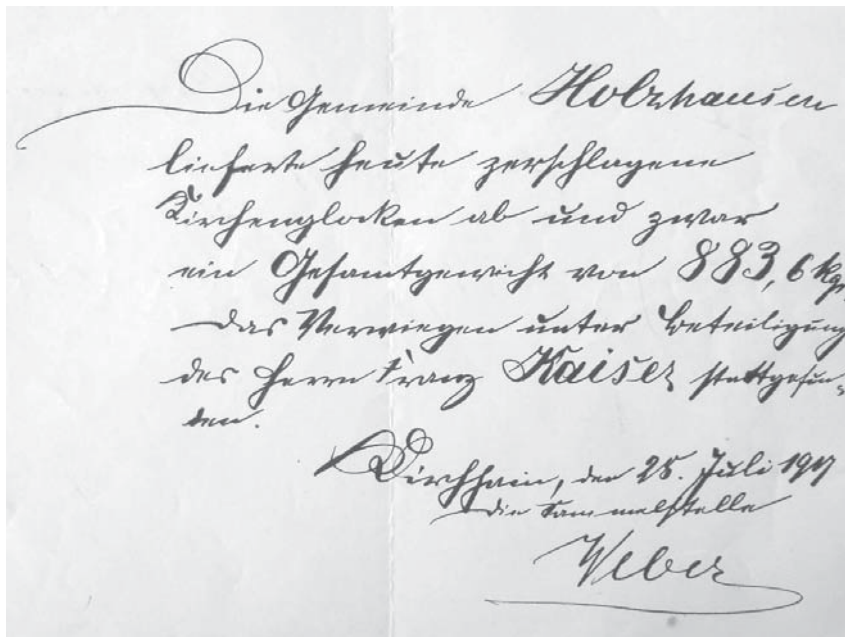 Die Gemeinde Holzhausen
lieferte heute zerschlagene
Kirchenglocken ab und zwar
ein Gesamtgewicht von 883,6 kg.
Das Verwiegen unter Beteiligung
des Herrn Franz Kaiser stattgefun-
den.
Kirchhain, den 25. Juli 1917
Die Sammelstelle
Weber